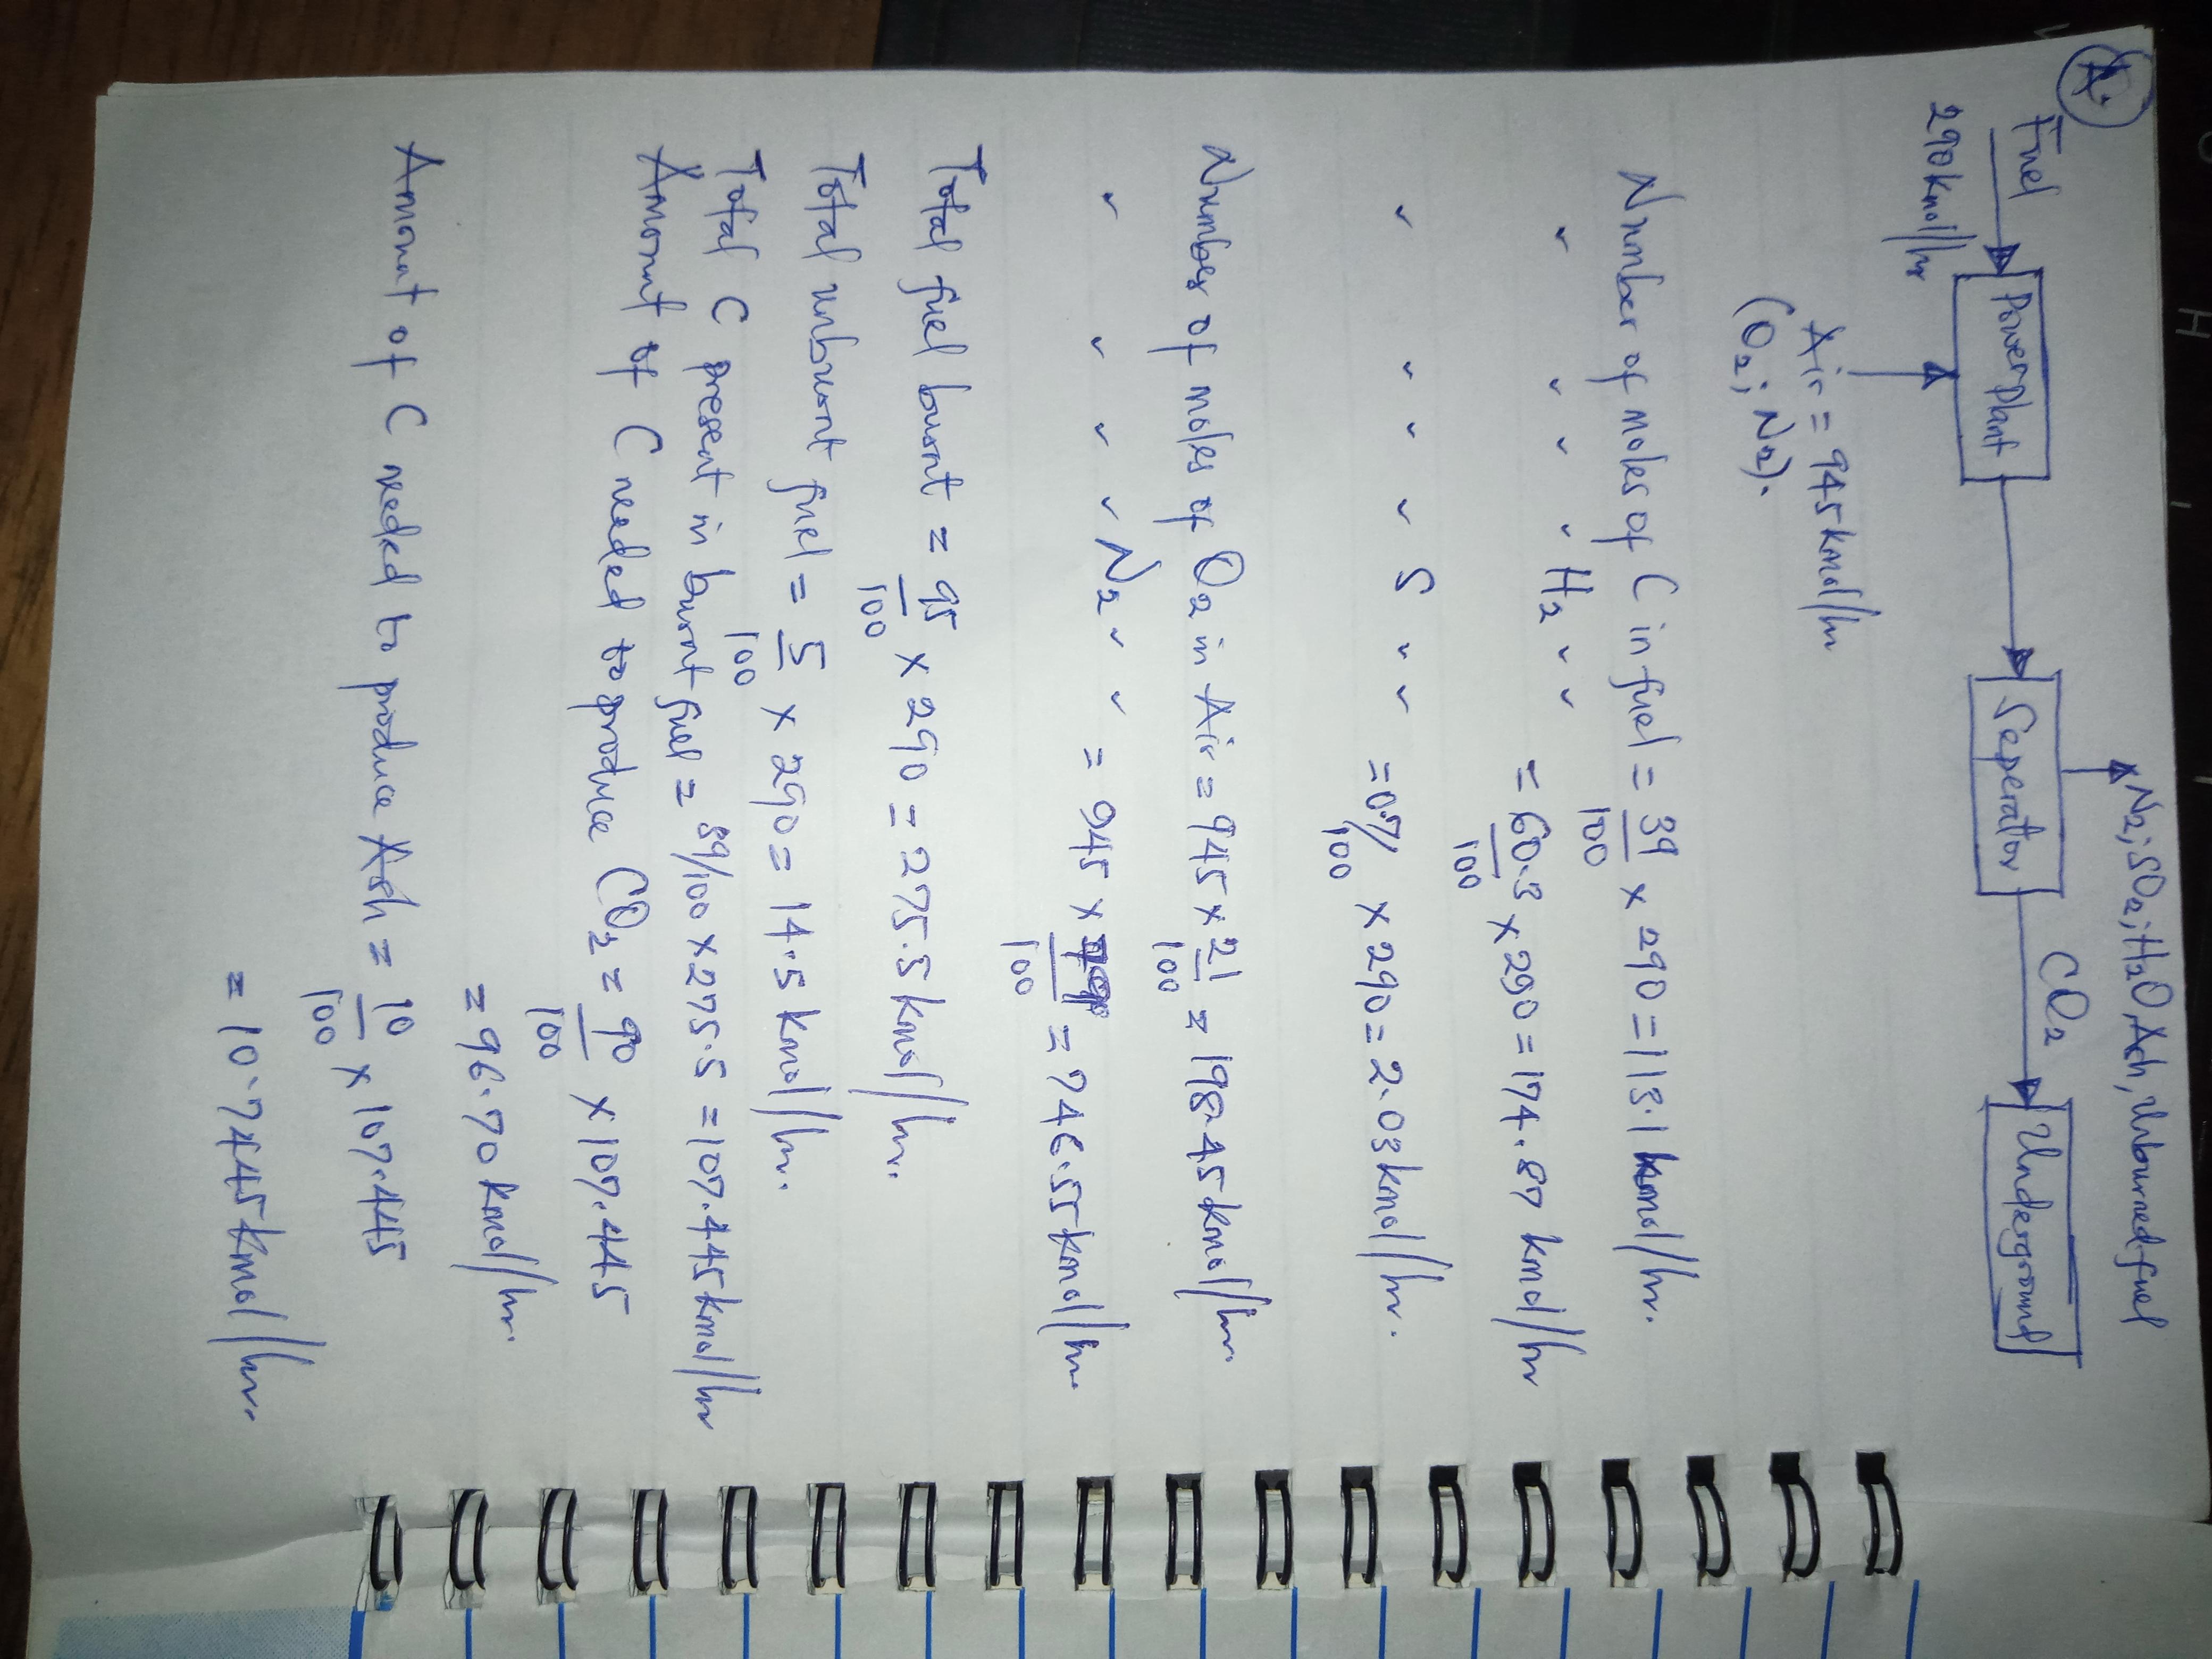 A.
N2; SO2; H2O, Ash, Unburned fuel
Fuel → Powerplant → Seperator → CO2 → Underground
290 kmol/hr
Air = 945 kmol/hr
(O2; N2).
Number of moles of C in fuel = 39/100 × 290 = 113.1 kmol/hr.
" " " " H2 " " = 60.3/100 × 290 = 174.87 kmol/hr
" " " " S " " = 0.7/100 × 290 = 2.03 kmol/hr.
Number of moles of O2 in Air = 945 × 21/100 = 198.45 kmol/hr.
" " " " N2 " " = 945 × 79/100 = 746.55 kmol/hr.
Total fuel burnt = 95/100 × 290 = 275.5 kmol/hr.
Total unburnt fuel = 5/100 × 290 = 14.5 kmol/hr.
Total C present in burnt fuel = 39/100 × 275.5 = 107.445 kmol/hr
Amount of C needed to produce CO2 = 90/100 × 107.445
= 96.70 kmol/hr.
Amount of C needed to produce Ash = 10/100 × 107.445
= 10.7445 kmol/hr.